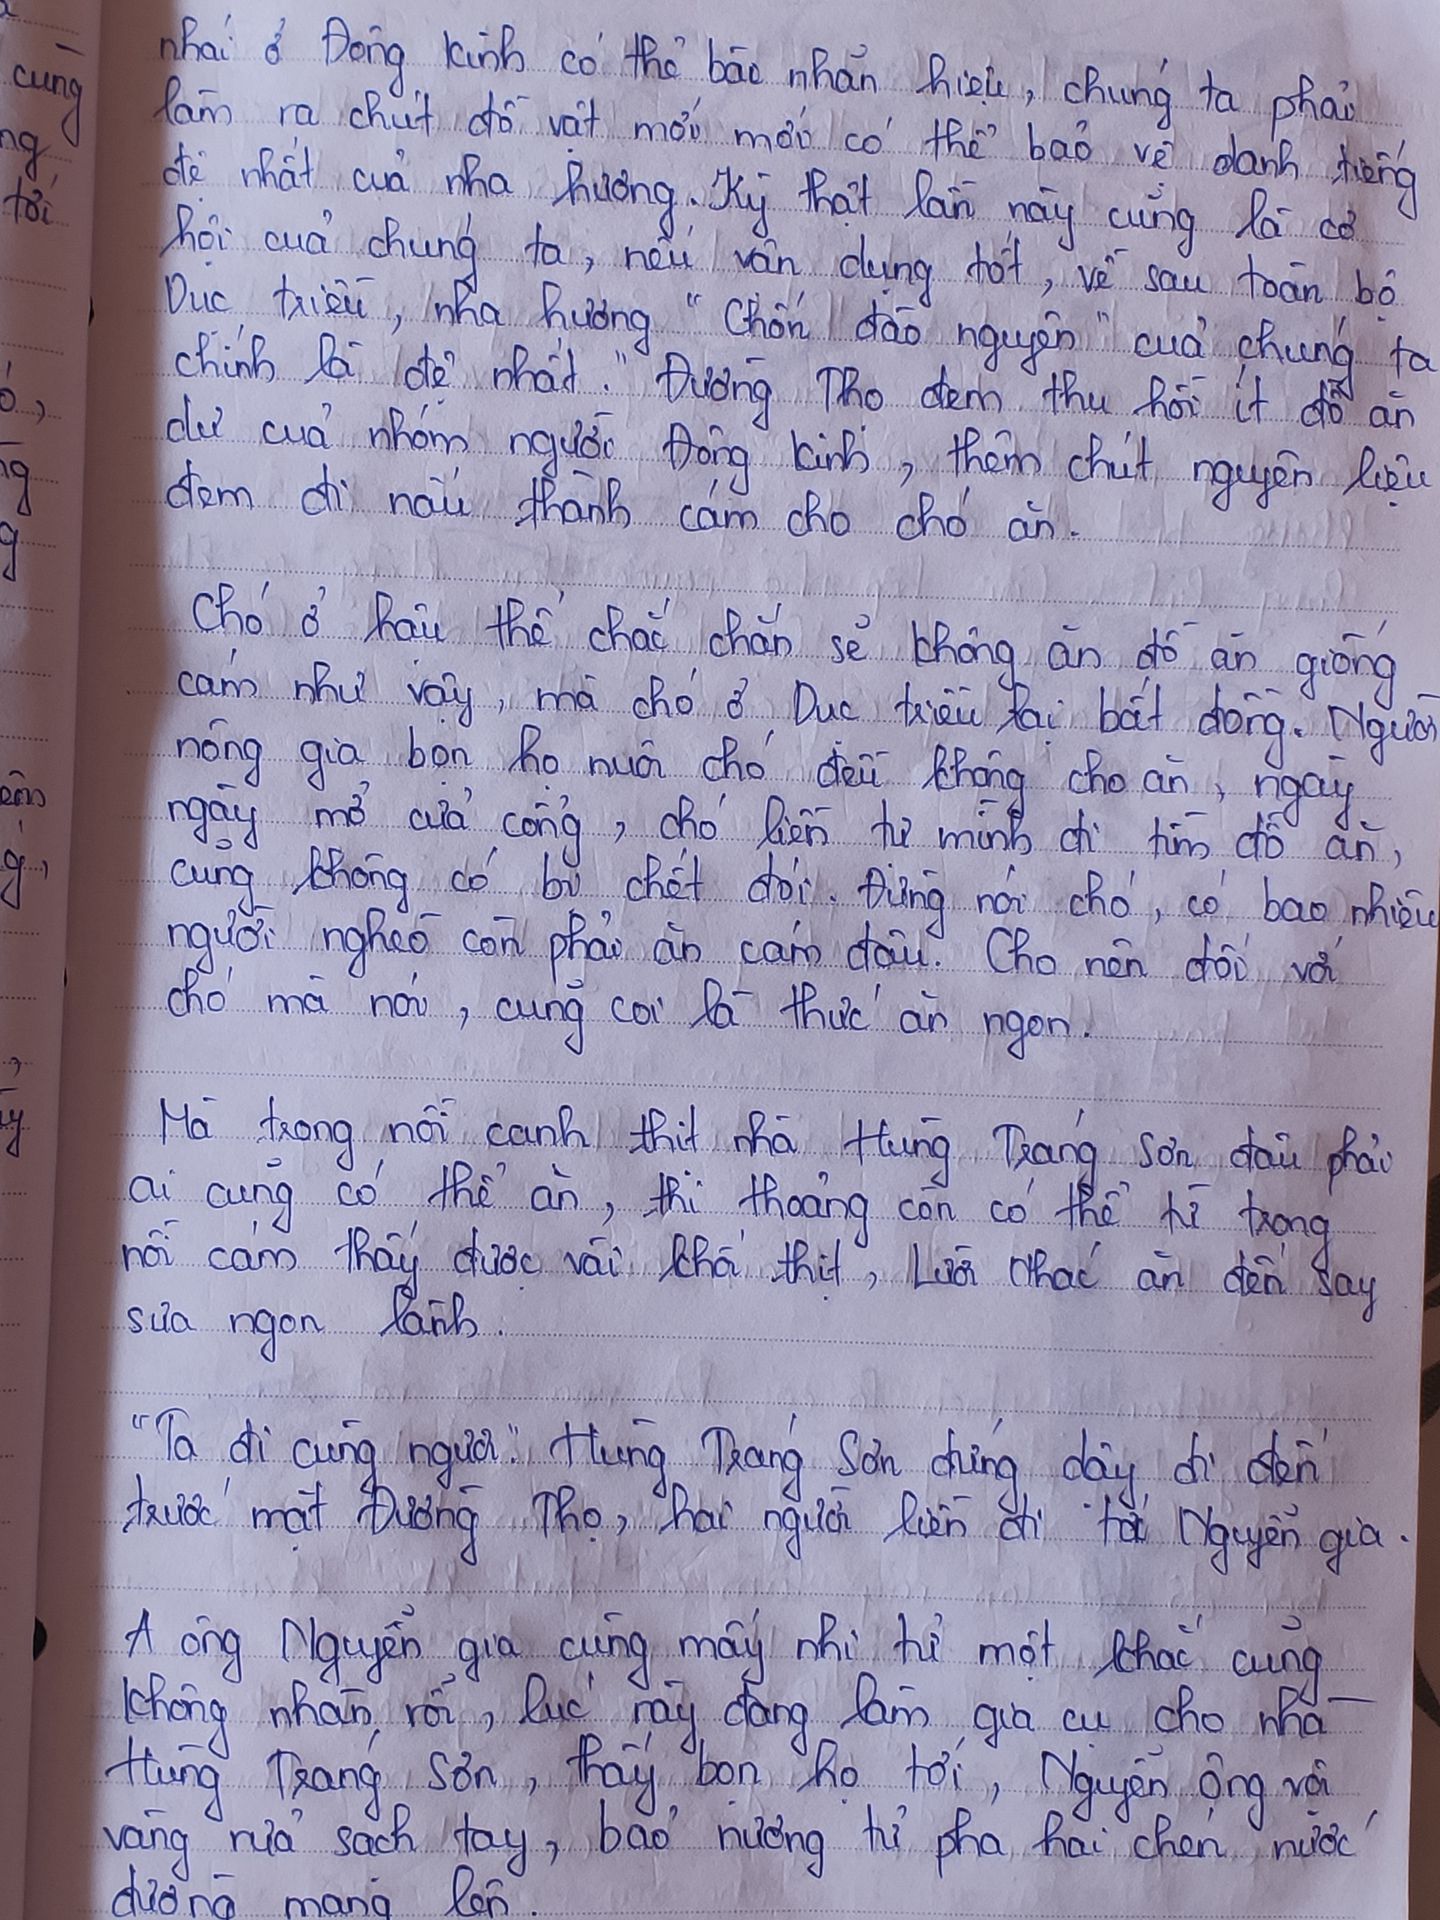 cùng
ng
tới
nhái ở Đông Kinh có thể bảo nhãn hiệu, chúng ta phải
làm ra chút đồ vật mới mới có thể bảo vệ danh tiếng
đệ nhất của nhà hương. Kỳ thật lần này cũng là cơ
hội của chúng ta, nếu vận dụng tốt, về sau toàn bộ
Dục triều, nhà hương "Chốn đào nguyên" của chúng ta
chính là đệ nhất." Đường Thọ đem thu hồi ít đồ ăn
dư của nhóm người Đông Kinh, thêm chút nguyên liệu
đem đi nấu thành cám cho chó ăn.
Chó ở hậu thế chắc chắn sẽ không ăn đồ ăn giống
cám như vậy, mà chó ở Dục triều lại bất đồng. Người
nông gia bọn họ nuôi chó đều không cho ăn, ngày
ngày mở cửa cổng, chó liền tự mình đi tìm đồ ăn,
cũng không có bị chết đói. Đừng nói chó, có bao nhiêu
người nghèo còn phải ăn cám đâu. Cho nên đối với
chó mà nói, cũng coi là thức ăn ngon.
Mà trong nồi canh thịt nhà Hùng Tráng Sơn đâu phải
ai cũng có thể ăn, thi thoảng còn có thể từ trong
nồi cám thấy được vài khối thịt, Lười Nhác ăn đến say
sưa ngon lành.
"Ta đi cùng ngươi." Hùng Tráng Sơn đứng dậy đi đến
trước mặt Đường Thọ, hai người liền đi tới Nguyễn gia.
A ông Nguyễn gia cùng mấy nhi tử một khắc cũng
không nhàn rỗi, lúc này đang làm gia cụ cho nhà
Hùng Tráng Sơn, thấy bọn họ tới, Nguyễn ông vội
vàng rửa sạch tay, bảo nương tử pha hai chén nước
đường mang lên.